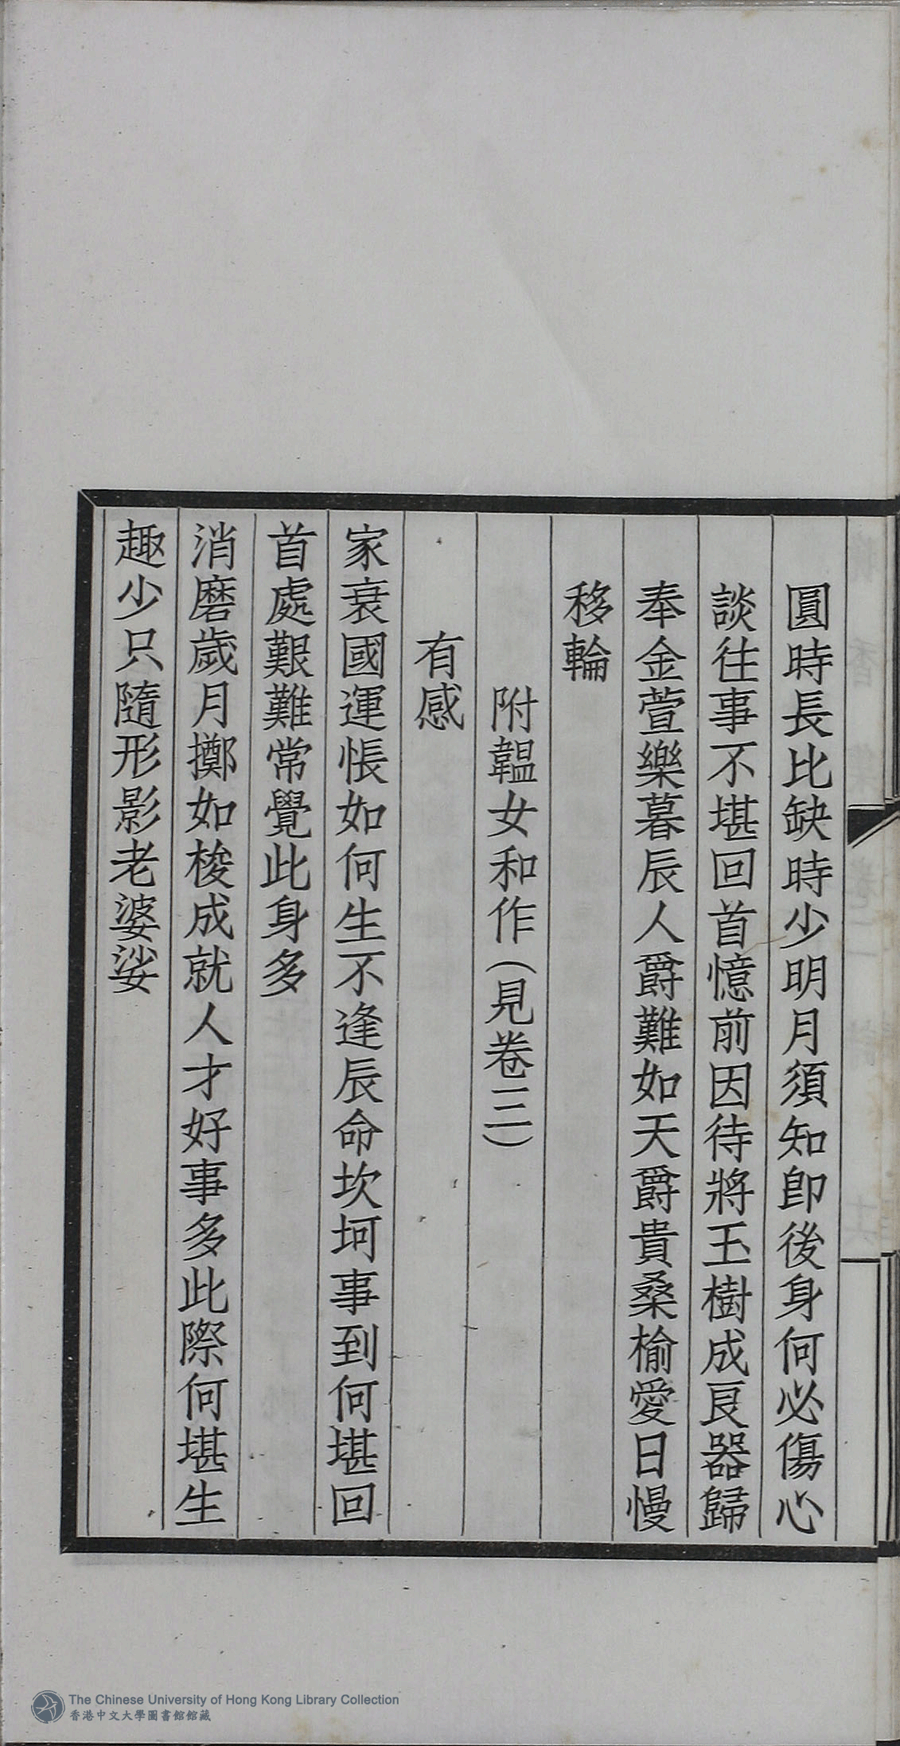 圓時長比缺時少明月須知卽後身何必傷心
談往事不堪回首憶前因待將玉樹成良器歸
奉金萱樂暮辰人爵難如天爵貴桑榆愛日慢
移輪
附韞女和作(見卷三)
有感
家衰國運悵如何生不逢辰命坎坷事到何堪回
首處艱難常覺此身多
消磨歲月擲如梭成就人才好事多此際何堪生
趣少只隨形影老婆娑
The Chinese University of Hong Kong Library Collection
香港中文大學圖書館館藏